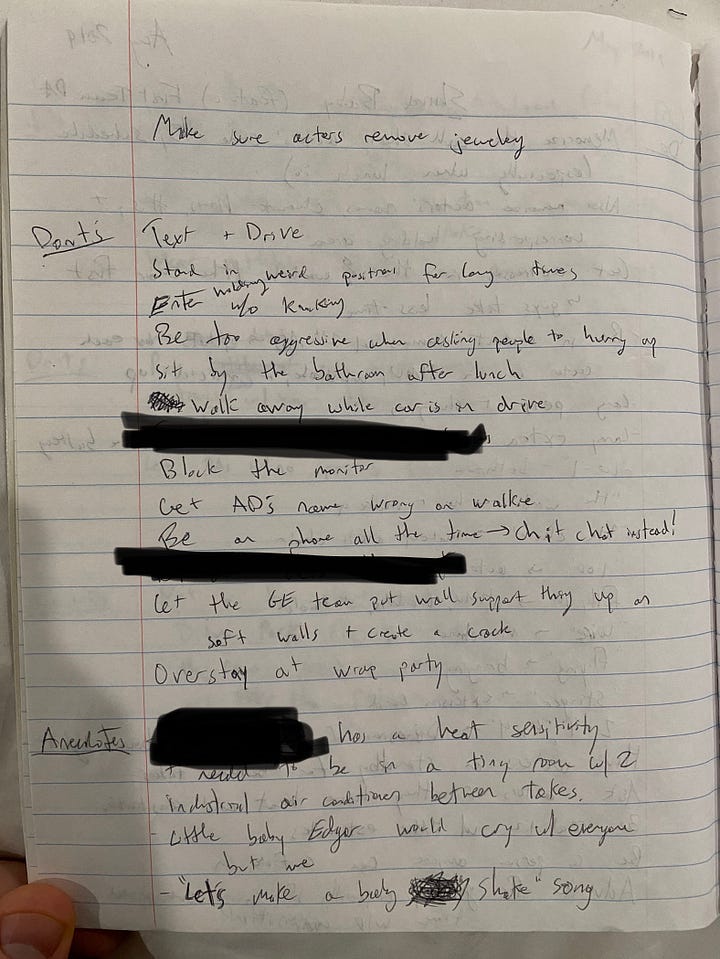 Make sure actors remove jewelry
Dont's Text + Drive
Stand in weird positions for long times
Enter holding w/o knocking
Be too aggressive when asking people to hurry up
Sit by the bathroom after lunch
Walk away while car is in drive
Block the monitor
Get AD's name wrong on walkie
Be on phone all the time → chit chat instead!
Let the GE team put wall support thing up on
soft walls + create a crack
Overstay at wrap party
Anecdotes - has a heat sensitivity
+ needed to be in a tiny room w/ 2
industrial air conditioners between takes.
- Little baby Edgar would cry w/ everyone
but me
- "Let's make a baby shake" song